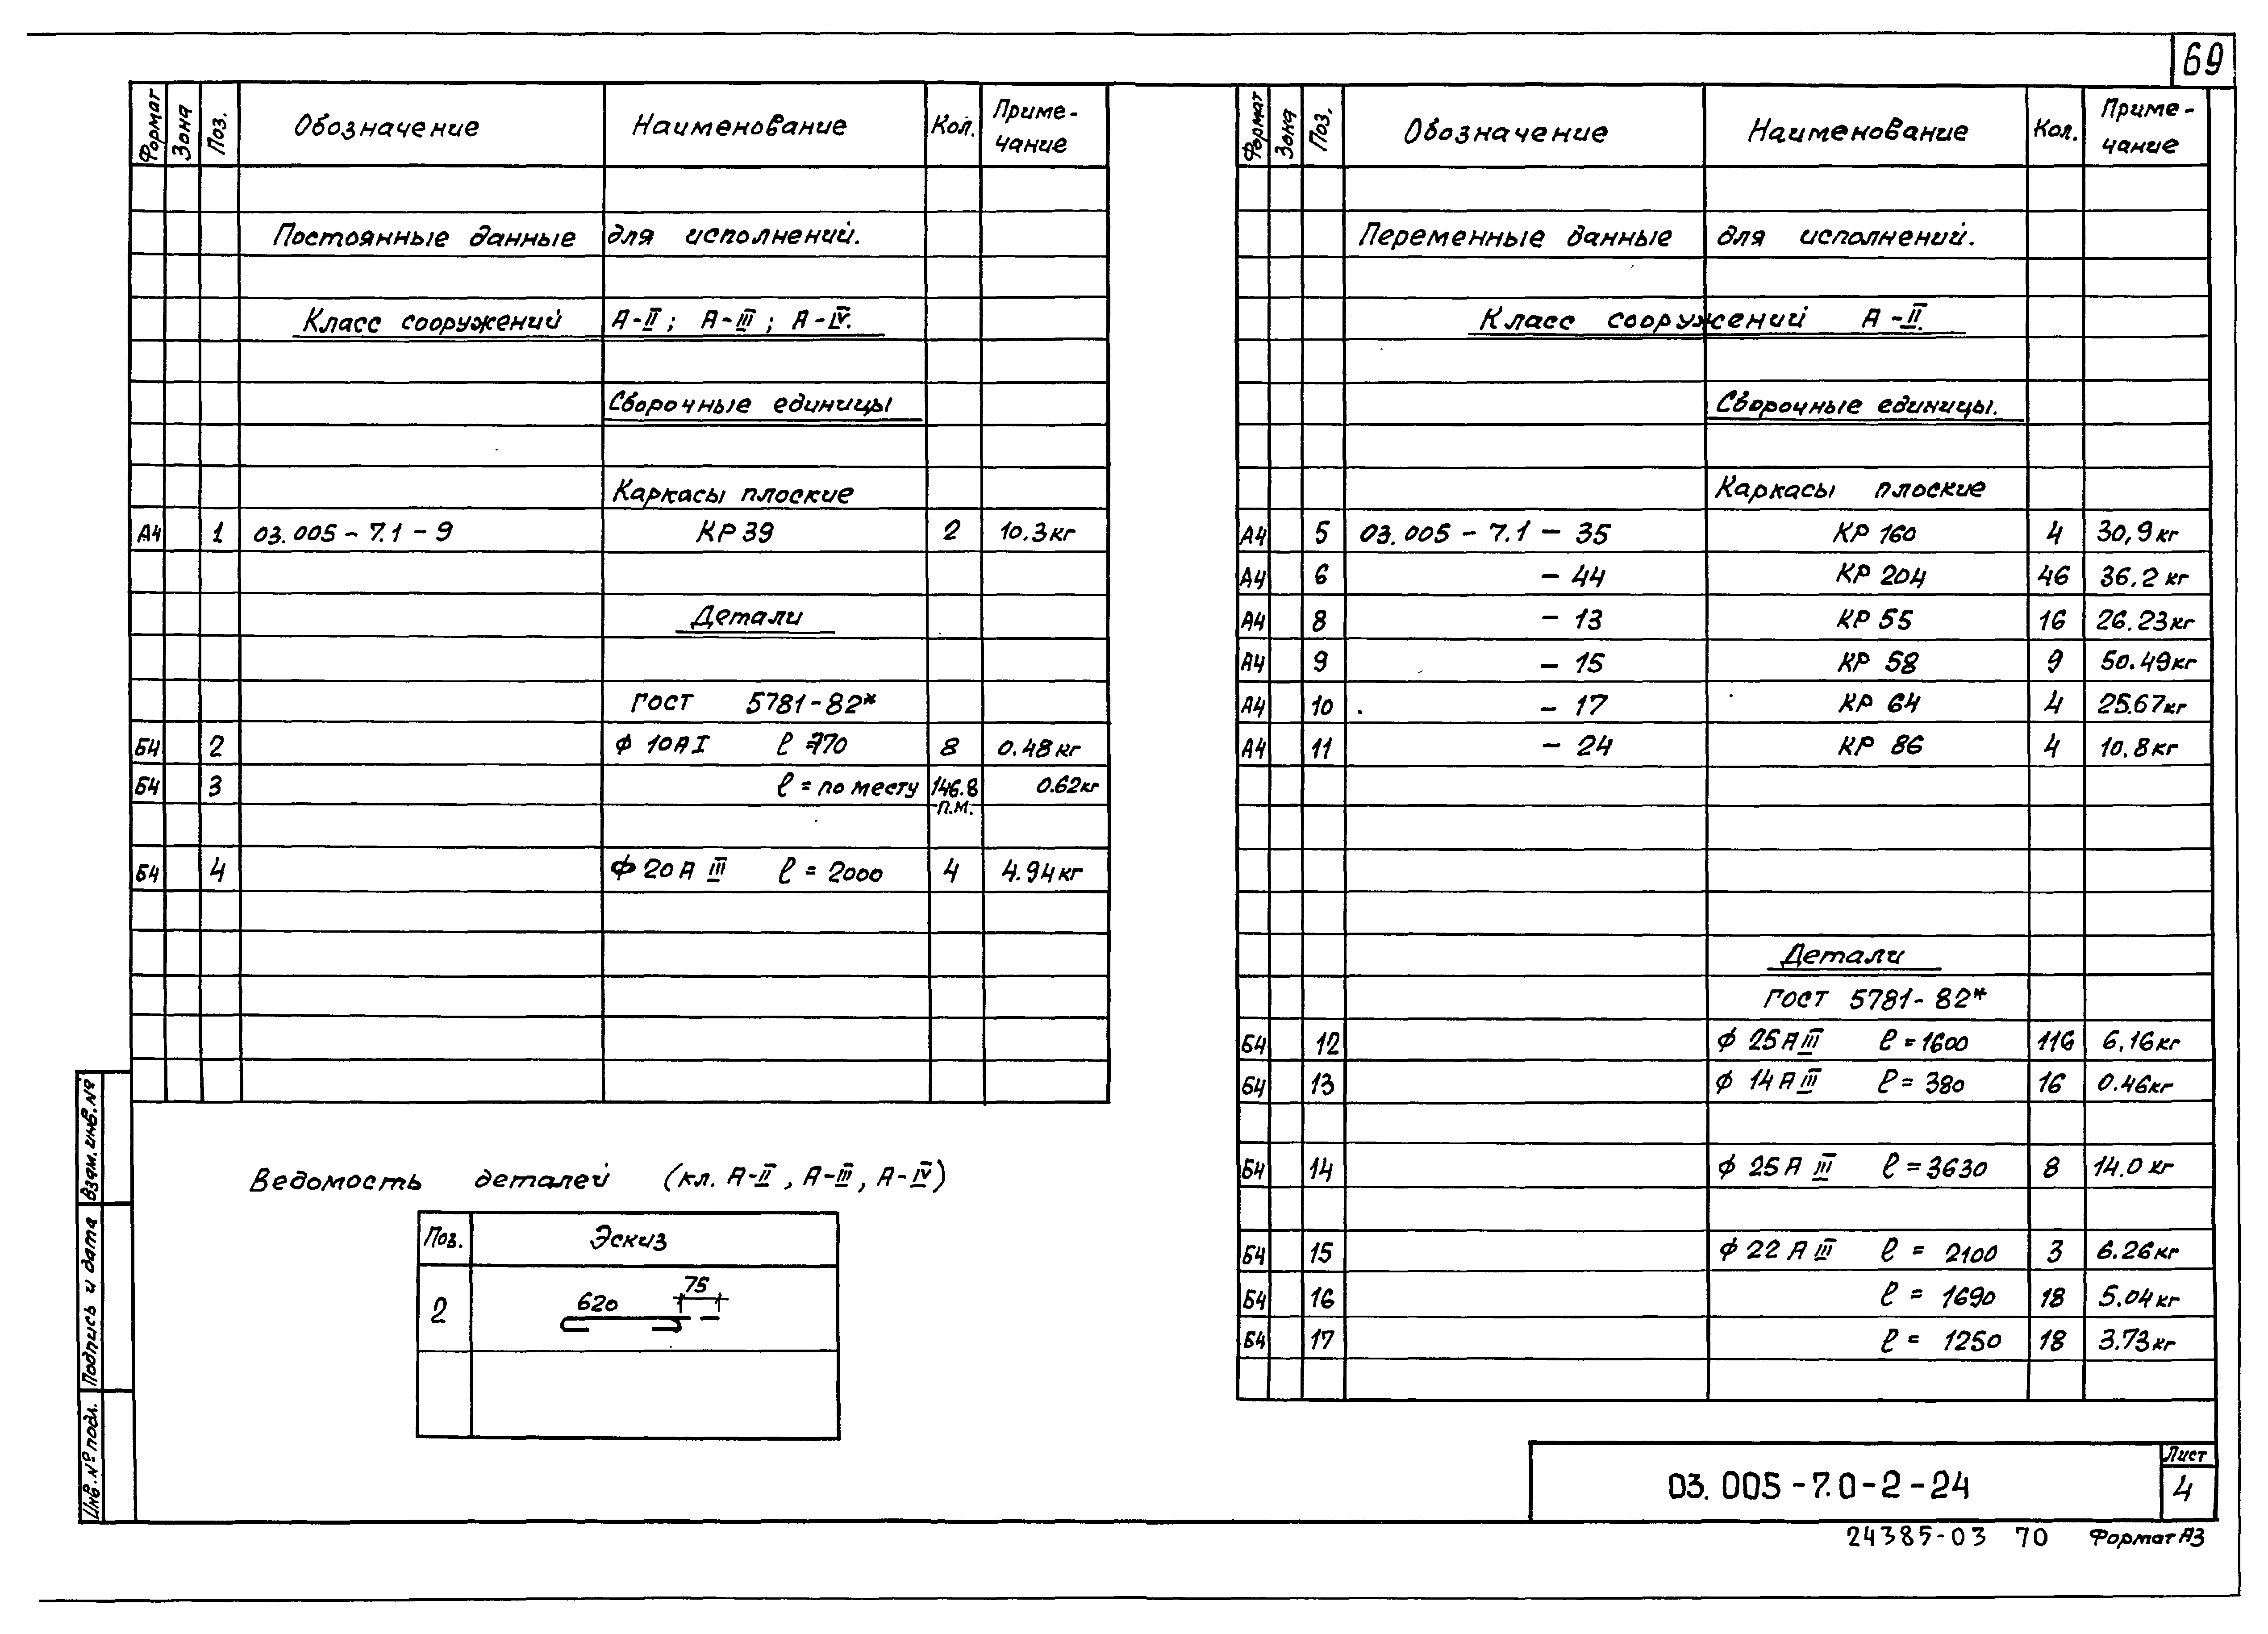 69
Формат Зона Поз. Обозначение Наименование Кол. Приме-
чание
Постоянные данные для исполнений.
Класс сооружений А-II; А-III; А-IV.
Сборочные единицы
Каркасы плоские
А4 1 03.005-7.1-9 КР39 2 10.3кг
Детали
ГОСТ 5781-82*
Б4 2 ф 10АI ℓ=770 8 0.48кг
Б4 3 ℓ=по месту 146.8 0.62кг
п.м.
Б4 4 ф 20А III ℓ=2000 4 4.94кг
Ведомость деталей (кл. А-II, А-III, А-IV)
Поз. Эскиз
2 620 75
Формат Зона Поз. Обозначение Наименование Кол. Приме-
чание
Переменные данные для исполнений.
Класс сооружений А-II.
Сборочные единицы.
Каркасы плоские
А4 5 03.005-7.1-35 КР 160 4 30,9кг
А4 6 -44 КР 204 46 36.2кг
А4 8 -13 КР 55 16 26.23кг
А4 9 -15 КР 58 9 50.49кг
А4 10 -17 КР 64 4 25.67кг
А4 11 -24 КР 86 4 10.8кг
Детали
ГОСТ 5781-82*
Б4 12 ф 25АIII ℓ=1600 116 6,16кг
Б4 13 ф 14АIII ℓ=380 16 0.46кг
Б4 14 ф 25А III ℓ=3630 8 14.0кг
Б4 15 ф 22А III ℓ= 2100 3 6.26кг
Б4 16 ℓ= 1690 18 5.04кг
Б4 17 ℓ= 1250 18 3.73кг
Взам. инв. №
Подпись и дата
Инв. № подл.
03.005-7.0-2-24
Лист
4
24385-03 70 Формат А3